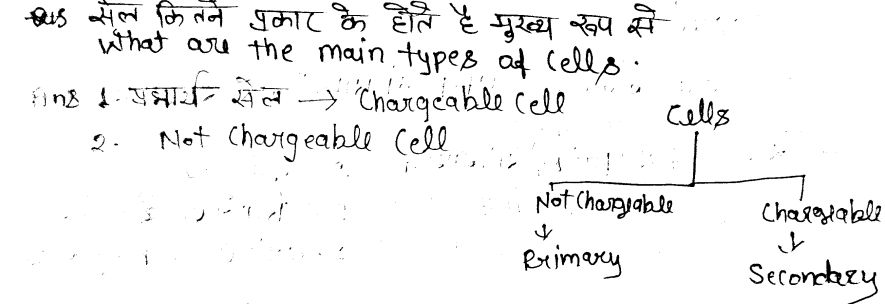 Ques सेल कितने प्रकार के होते है मुख्य रूप से
What are the main types of cells.
Ans 1. सेल → Chargeable Cell
2. Not Chargeable Cell
Cells
Not Chargeable Chargeable
↓ ↓
Primary Secondary